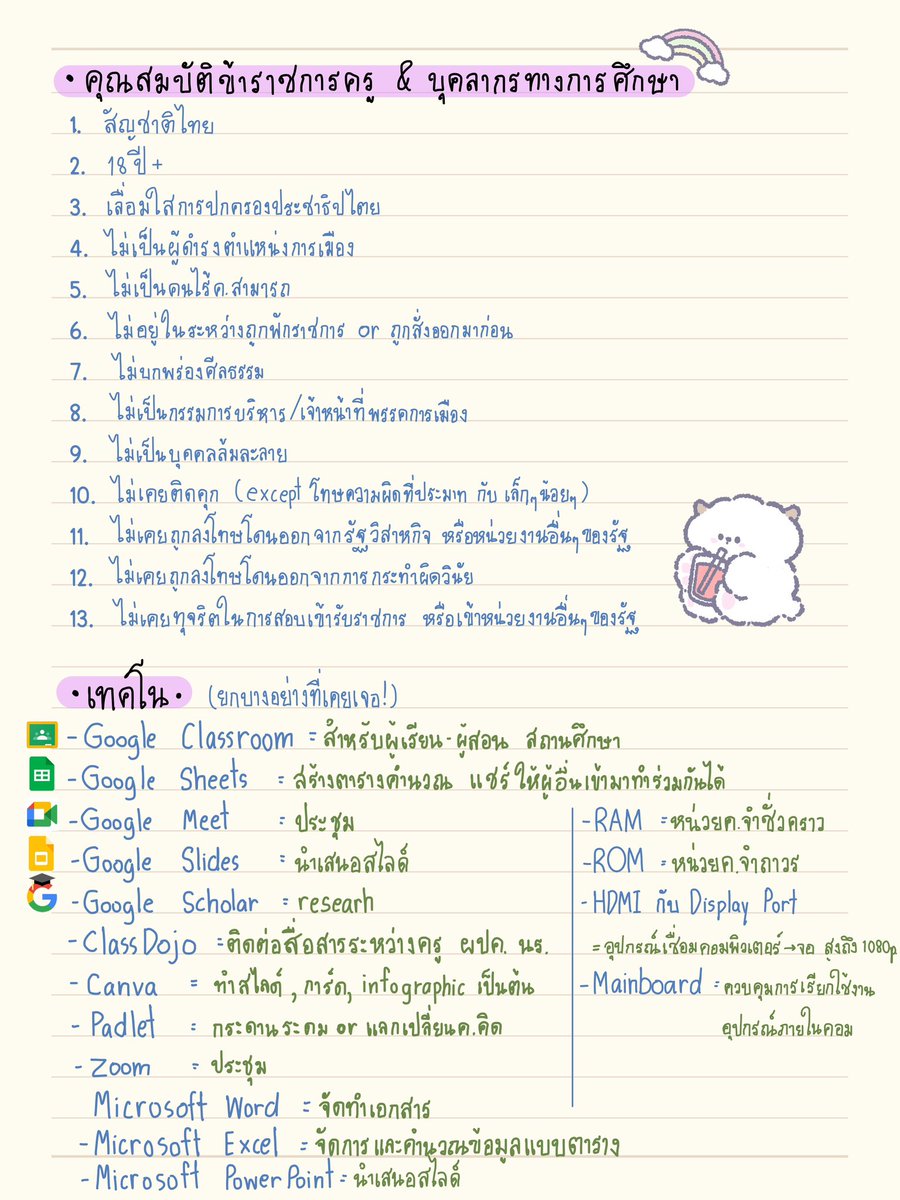 • คุณสมบัติข้าราชการครู & บุคลากรทางการศึกษา
1. สัญชาติไทย
2. 18 ปี +
3. เลื่อมใสการปกครองประชาธิปไตย
4. ไม่เป็นผู้ดำรงตำแหน่งการเมือง
5. ไม่เป็นคนไร้ค.สามารถ
6. ไม่อยู่ในระหว่างถูกพักราชการ or ถูกสั่งออกมาก่อน
7. ไม่บกพร่องศีลธรรม
8. ไม่เป็นกรรมการบริหาร/เจ้าหน้าที่พรรคการเมือง
9. ไม่เป็นบุคคลล้มละลาย
10. ไม่เคยติดคุก (except โทษความผิดที่ประมาท กับ เล็กๆน้อยๆ)
11. ไม่เคยถูกลงโทษโดนออกจากรัฐวิสาหกิจ หรือหน่วยงานอื่นๆของรัฐ
12. ไม่เคยถูกลงโทษโดนออกจากการกระทำผิดวินัย
13. ไม่เคยทุจริตในการสอบเข้ารับราชการ หรือเข้าหน่วยงานอื่นๆของรัฐ
• เทคโน • (ยกบางอย่างที่เคยเจอ!)
- Google Classroom = สำหรับผู้เรียน - ผู้สอน สถานศึกษา
- Google Sheets = สร้างตารางคำนวณ แชร์ให้ผู้อื่นเข้ามาทำร่วมกันได้
- Google Meet = ประชุม
- Google Slides = นำเสนอสไลด์
- Google Scholar = researh
- ClassDojo = ติดต่อสื่อสารระหว่างครู ผปค. นร.
- Canva = ทำสไลด์, การ์ด, infographic เป็นต้น
- Padlet = กระดานระดม or แลกเปลี่ยนค.คิด
- Zoom = ประชุม
Microsoft Word = จัดทำเอกสาร
- Microsoft Excel = จัดการและคำนวณข้อมูลแบบตาราง
- Microsoft PowerPoint = นำเสนอสไลด์
- RAM = หน่วยค.จำชั่วคราว
- ROM = หน่วยค.จำถาวร
- HDMI กับ Display Port
= อุปกรณ์เชื่อมคอมพิวเตอร์→จอ สูงถึง 1080p
- Mainboard = ควบคุมการเรียกใช้งาน
อุปกรณ์ภายในคอม